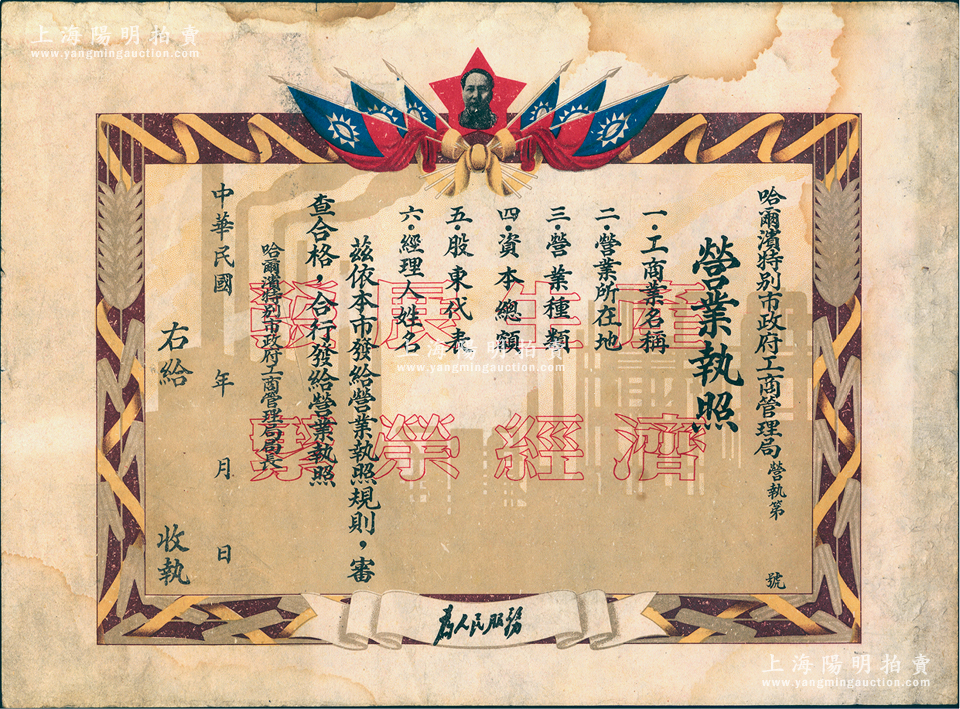 上海陽明拍賣
www.yangmingauction.com
哈爾濱特别市政府工商管理局營執第　號
營業執照
一．工商業名稱
二．營業所在地
三．營業種類
四．資本總額
五．股東代表
六．經理人姓名
茲依本市發給營業執照規則，審
查合格，合行發給營業執照
哈爾濱特别市政府工商管理局局長
中華民國　年　月　日
右給　收執
發展生產
繁榮經濟
上海陽明拍賣
www.yangmingauction.com
為人民服務
上海陽明拍賣
www.yangmingauction.com